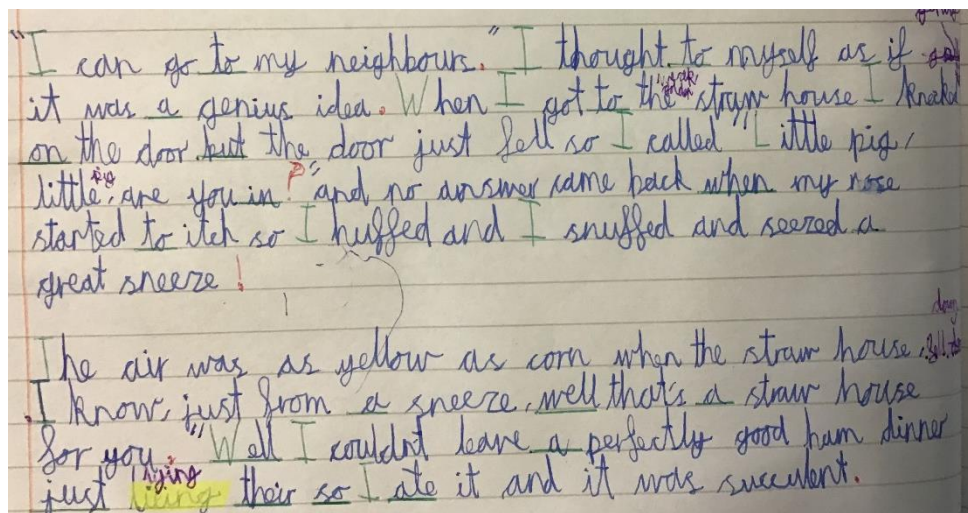 "I can go to my neighbours." I thought to myself as if
it was a genius idea. When I got to the straw house I knocked
on the door but the door just fell so I called "Little pig,
little pig, are you in?" and no answer came back when my nose
started to itch so I huffed and I snuffed and seezed a
great sneeze!
The air was as yellow as corn when the straw house fell down
. I know, just from a sneeze, well that's a straw house
for you. "Well I couldn't leave a perfectly good ham dinner
just lying their so I ate it and it was succulent.